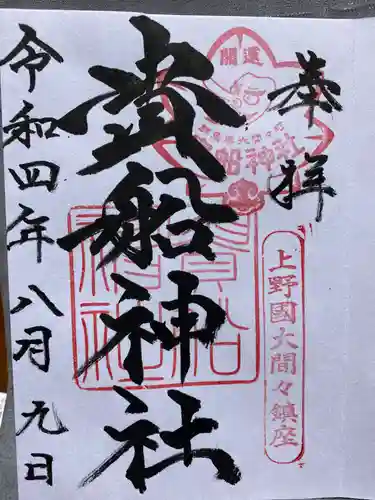 奉拝
開運
群馬県大間々町
貴船神社
貴船神社
貴船神社
上野國大間々鎮座
令和四年八月九日